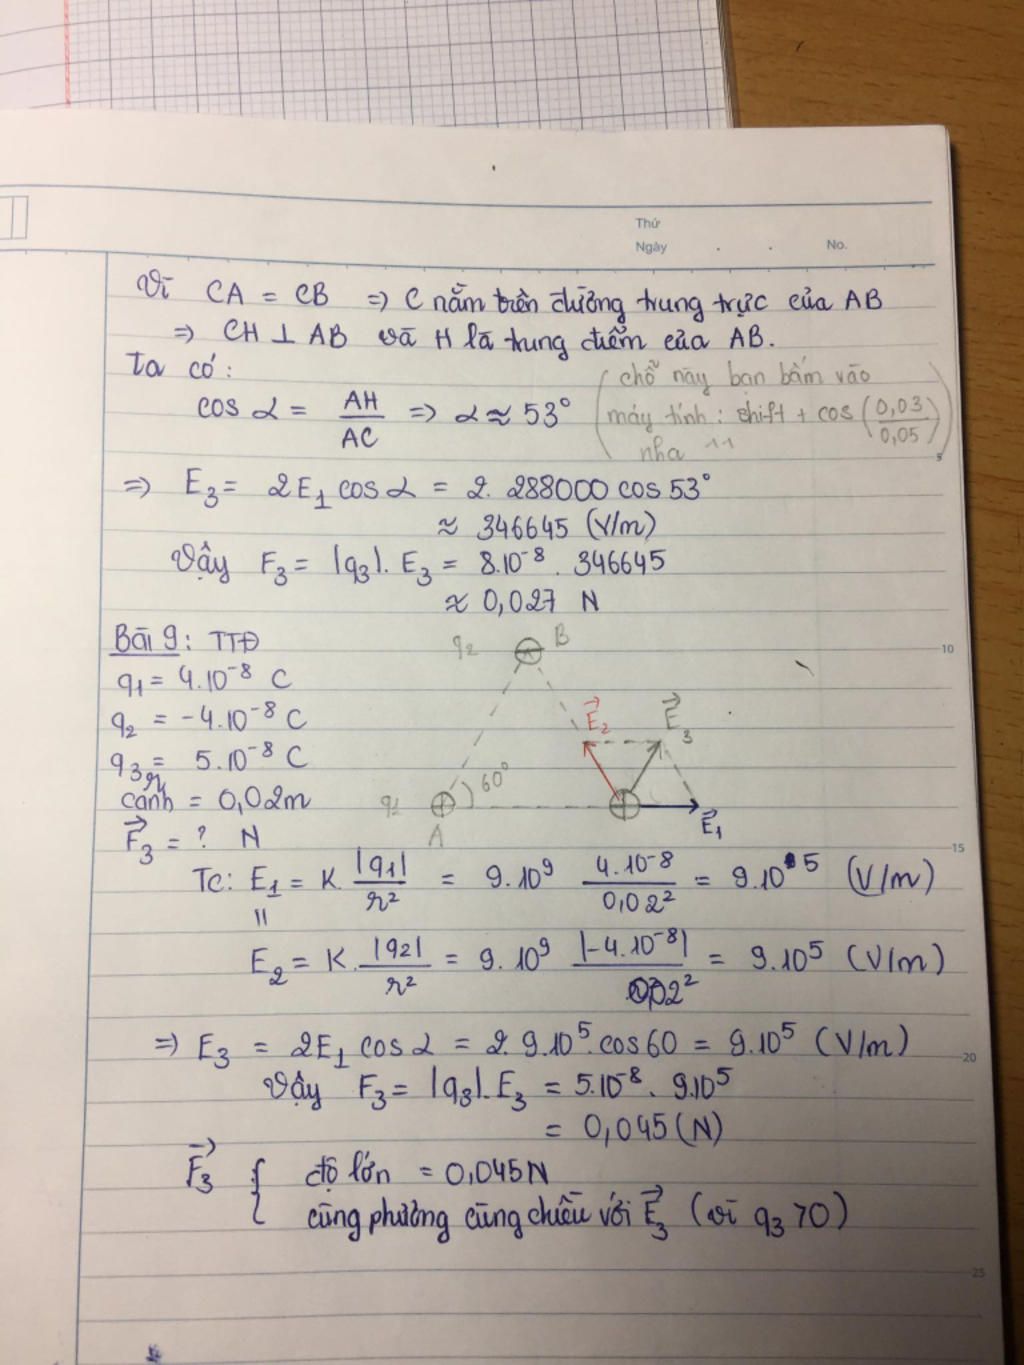 Thứ
Ngày . . No.
Vì CA = CB => C nằm trên đường trung trực của AB
=> CH ⊥ AB và H là trung điểm của AB.
Ta có:
cos α = AH/AC => α ≈ 53°
(chỗ này bạn bấm vào
máy tính: shift + cos(0,03/0,05)
nha ^^)
=> E₃ = 2E₁ cos α = 2. 288000 cos 53°
≈ 346645 (V/m)
Vậy F₃ = |q₃|. E₃ = 8.10⁻⁸ . 346645
≈ 0,027 N
Bài 9: TTĐ
q₁ = 4.10⁻⁸ C
q₂ = -4.10⁻⁸ C
q₃ = 5.10⁻⁸ C
cạnh = 0,02m
F⃗₃ = ? N
q₂ B
E⃗₂ E⃗₃
60°
q₁
A
E⃗₁
Tc: E₁ = K. |q₁|/r² = 9.10⁹ 4.10⁻⁸/0,02² = 9.10⁵ (V/m)
=
E₂ = K. |q₂|/r² = 9.10⁹ |-4.10⁻⁸|/0,02² = 9.10⁵ (V/m)
=> E₃ = 2E₁ cos α = 2. 9.10⁵.cos60 = 9.10⁵ (V/m)
Vậy F₃ = |q₃|.E₃ = 5.10⁻⁸. 9.10⁵
= 0,045 (N)
F⃗₃ { độ lớn = 0,045N
cùng phương cùng chiều với E⃗₃ (vì q₃ > 0)
5
10
15
20
25